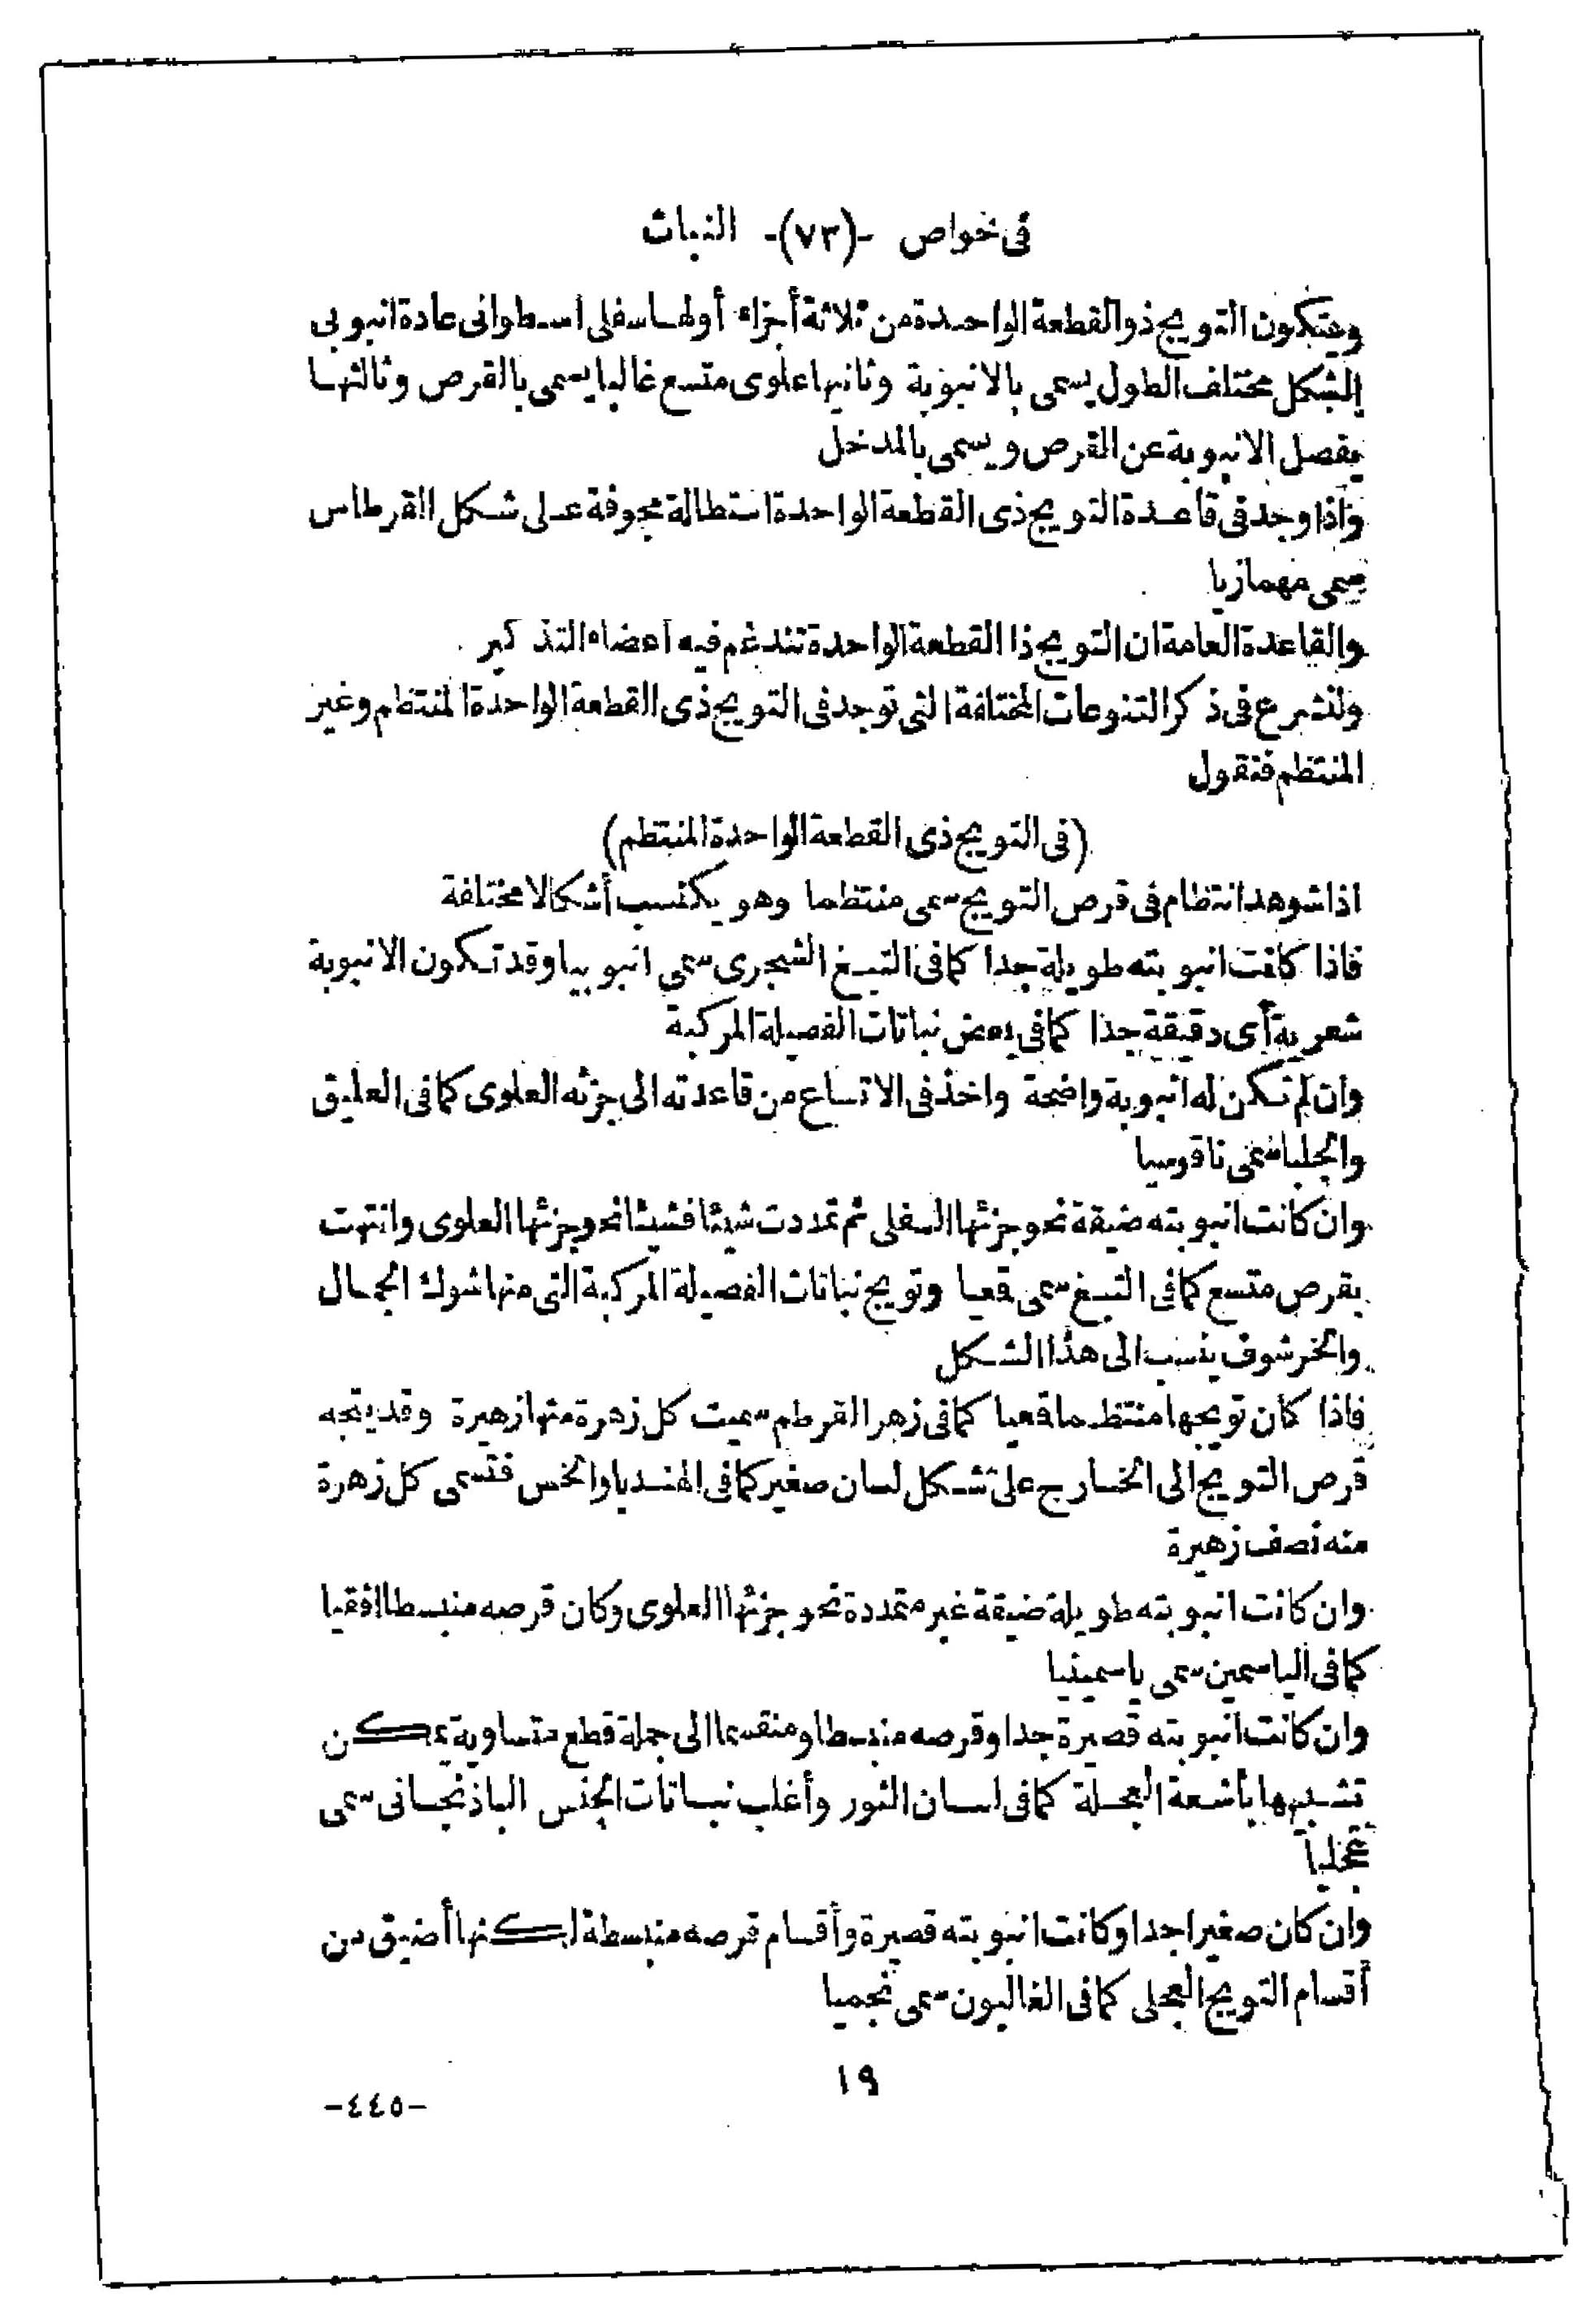 فى خواص -(٧٣)- النبات
ويتكون التويج ذو القطعة الواحدة من ثلاثة أجزاء أولها سفلى اسطوانى عادة انبوبى
الشكل مختلف الطول يسمى بالانبوبة وثانيها علوى متسع غالبا يسمى بالقرص وثالثها
يفصل الانبوبة عن القرص ويسمى بالمدخل
واذا وجد فى قاعدة التويج ذى القطعة الواحدة استطالة مجوفة على شكل القرطاس
سمى مهمازيا
والقاعدة العامة ان التويج ذا القطعة الواحدة تندغم فيه اعضاء التذكير
ولنشرع فى ذكر التنوعات المختلفة التى توجد فى التويج ذى القطعة الواحدة المنتظم وغير
المنتظم فنقول
(فى التويج ذى القطعة الواحدة المنتظم)
اذا شوهد انتظام فى قرص التويج سمى منتظما وهو يكتسب أشكالا مختلفة
فاذا كانت انبوبته طويلة جدا كما فى التبغ الشجرى سمى انبوبيا وقد تكون الانبوبة
شعرية أى دقيقة جدا كما فى بعض نباتات الفصيلة المركبة
وان لم تكن له انبوبة واضحة واخذ فى الاتساع من قاعدته الى جزئه العلوى كما فى العليق
والجلبا سمى ناقوسيا
وان كانت انبوبته ضيقة نحو جزئها السفلى ثم تمددت شيئا فشيئا نحو جزئها العلوى وانتهت
بقرص متسع كما فى التبغ سمى قعيا وتويج نباتات الفصيلة المركبة التى منها شوك الجمال
والخرشوف ينسب الى هذا الشكل
فاذا كان تويجها منتظما قعيا كما فى زهر القرطم سميت كل زهرة منها زهيرة وقد يتجه
قرص التويج الى الخارج على شكل لسان صغير كما فى الهنديا والخس فتسمى كل زهرة
منه نصف زهيرة
وان كانت انبوبته طويلة ضيقة غير متمددة نحو جزئها العلوى وكان قرصه منبسطا افقيا
كما فى الياسمين سمى ياسمينيا
وان كانت انبوبته قصيرة جدا وقرصه منبسطا ومنقسما الى جملة قطع متساوية يمكن
تشبيهها بأشعة العجلة كما فى لسان الثور وأغلب نباتات الجنس الباذنجانى سمى
عجليا
وان كان صغيرا جدا وكانت انبوبته قصيرة وأقسام قرصه منبسطة لكنها أضيق من
أقسام التويج العجلى كما فى الغاليون سمى نجميا
١٩
-٤٤٥-